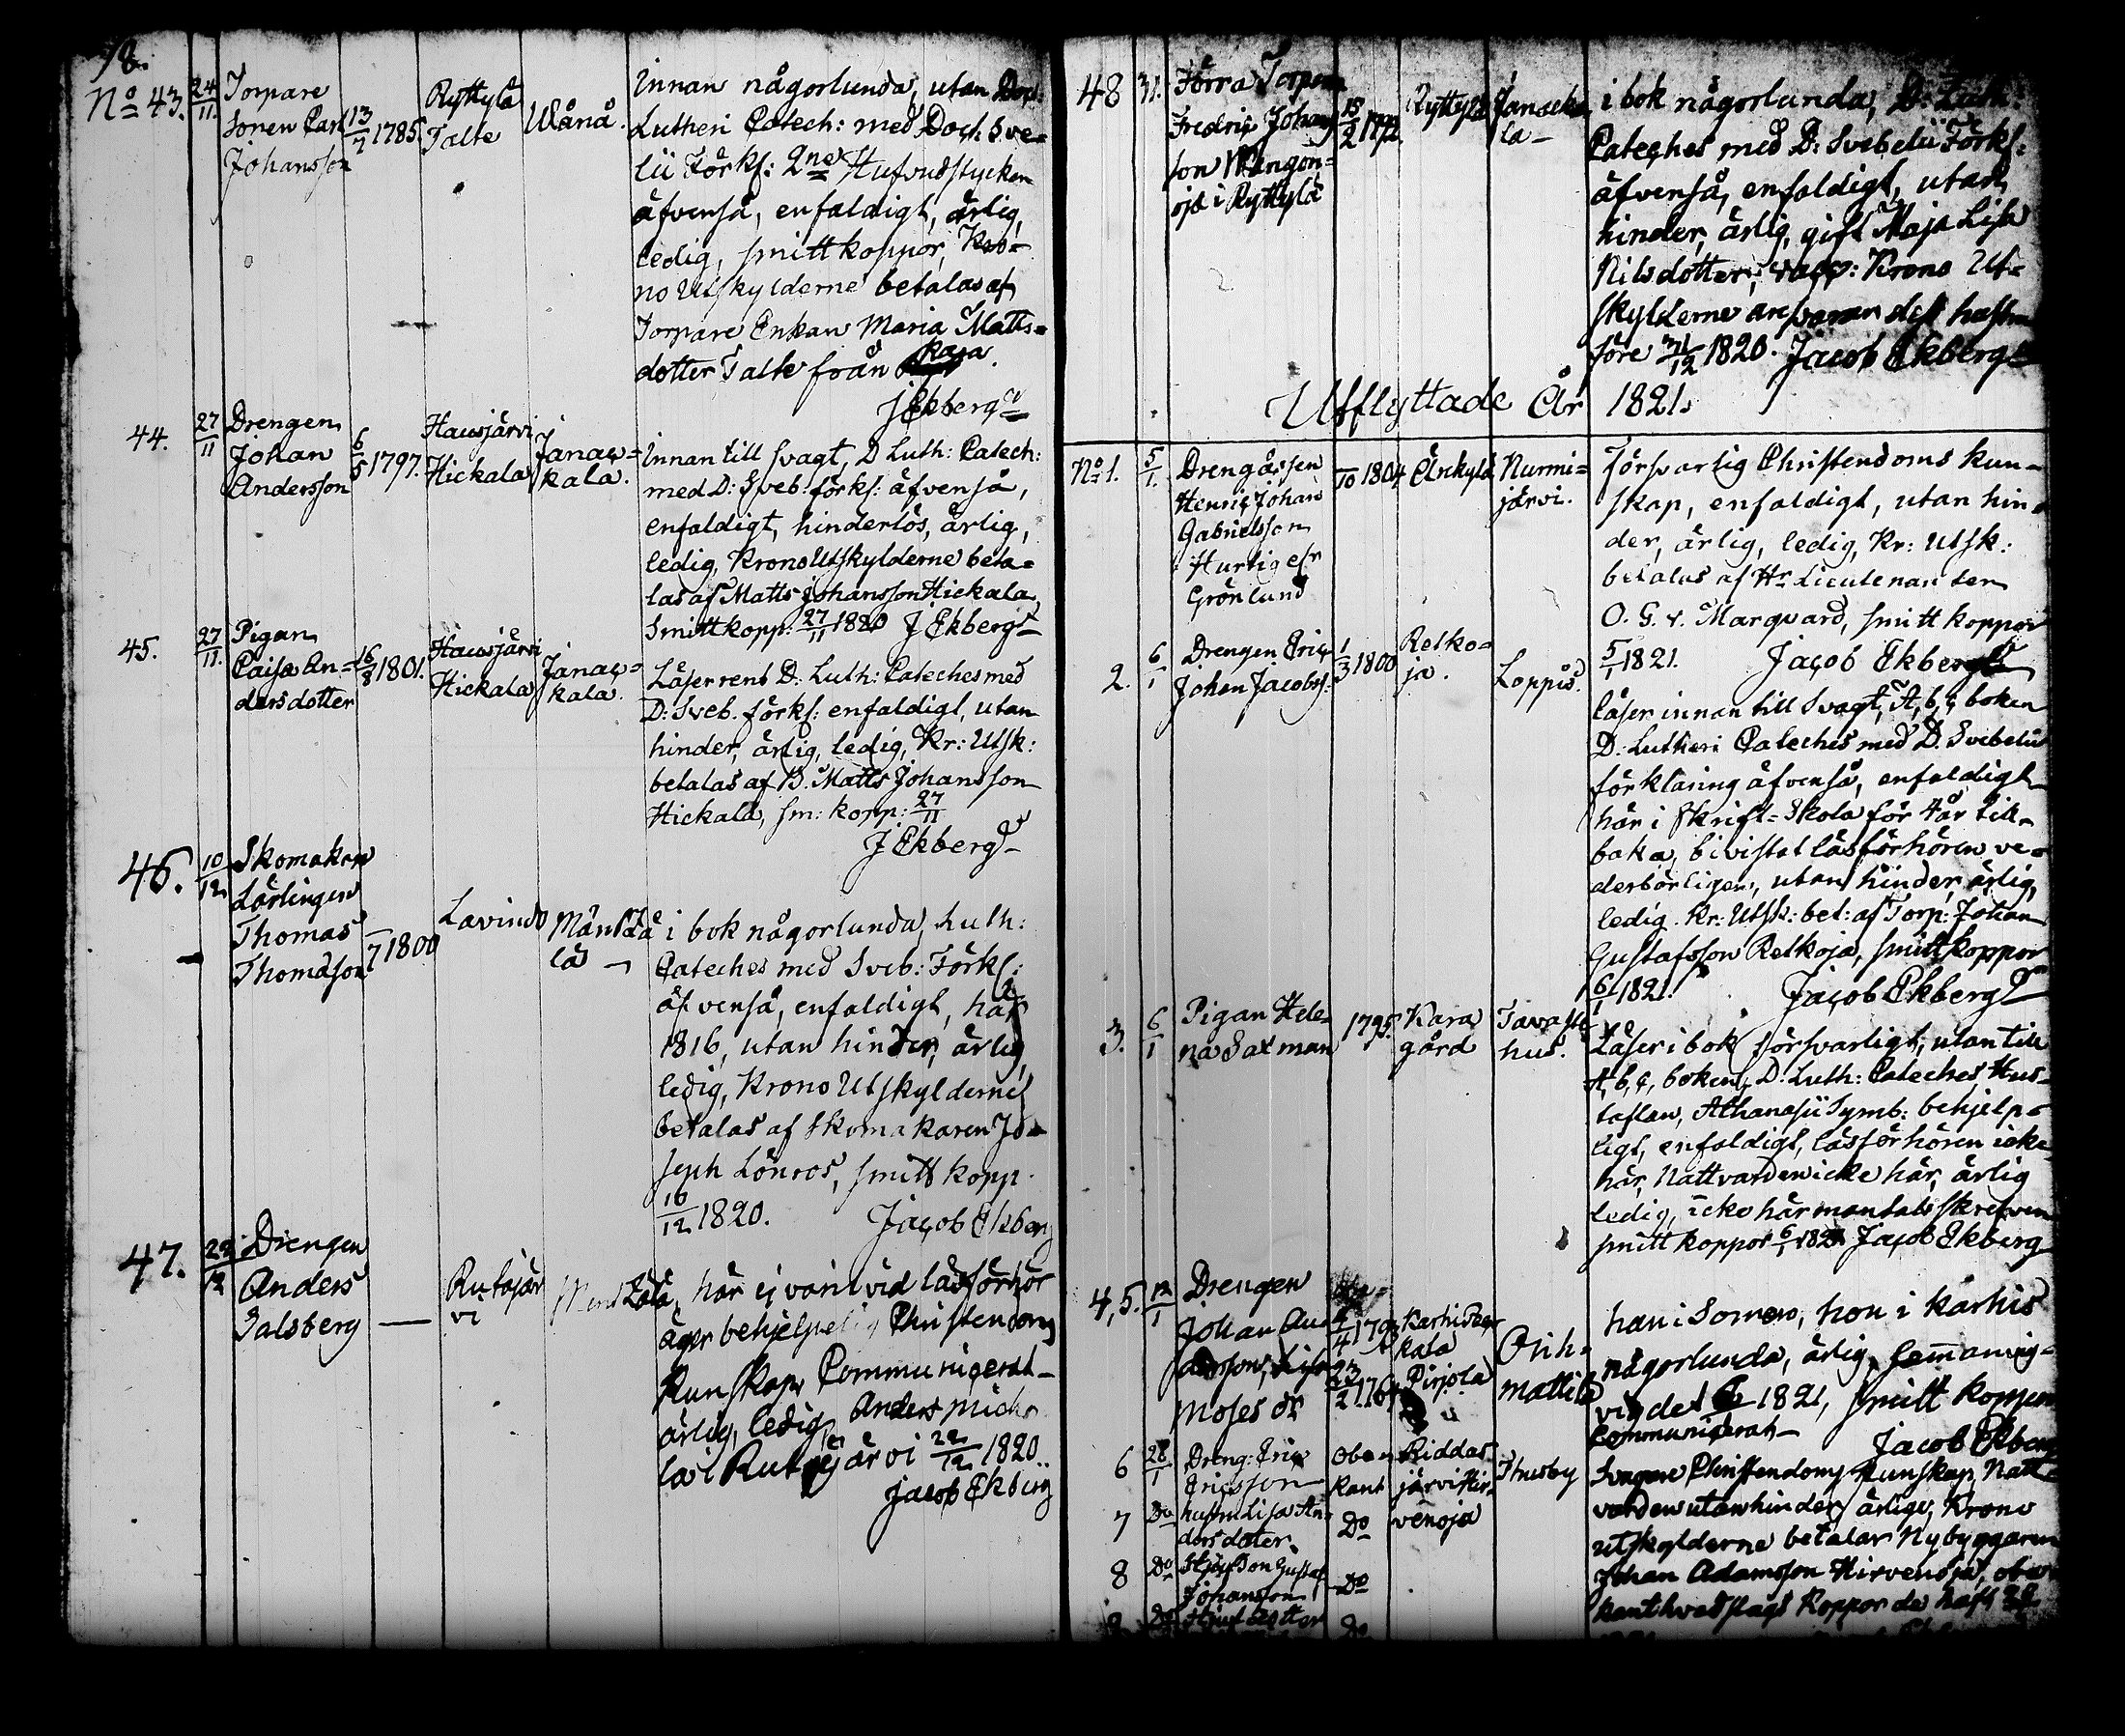 78.
No 43. 24/11. Torpare
Sonen Carl
Johansson
13/7 1785.
Ryttylä
Talte
Wånå.
Innan någorlunda, utan Doct:
Lutheri Catech: med Doct: Sve-
lii Förkl: 2ne Hufvudstycken
äfvenså, enfaldigt, ärlig,
ledig, smittkoppor, Kro-
no Utskylderne betalas af
Torpare Enkan Maria Matts-
dotter Talte från Kara.
JEkberg
44. 27/11 Drengen
Johan
Andersson
6/5 1797.
Hausjärvi
Hickala
Janac-
kala.
Innan till svagt, D Luth: Catech:
med D: Sveb: förkl: äfvenså,
enfaldigt, hinderlös, ärlig,
ledig, Krono Utskylderne beta-
las af Matts Johansson Hickala
Smittkopp: 27/11 1820 JEkberg
45. 27/11. Pigan
Caisa An-
dersdotter
16/8 1801.
Hausjärvi
Hickala
Janac-
kala.
Läser rent D: Luth: Cateches med
D: Sveb. förkl: enfaldigt, utan
hinder, ärlig, ledig, Kr: Utsk:
betalas af B. Matts Johansson
Hickala, sm: kopp: 27/11
JEkberg
46. 10/12 Skomakare
Lärlingen
Thomas
Thomasson
–/7 1800
Lavindo
Mäntzä
lä –
i bok någorlunda, Luth:
Cateches med Sveb: Förkl:
äfvenså, enfaldigt, här
1816, utan hinder, ärlig,
ledig, Krono Utskylderne
betalas af Skomakaren Jo-
seph Lönros, smitt kopp.
10/12 1820. Jacob Ekberg
47. 22/12 Drengen
Anders
Salsberg
—
Rutajär
vi
här ej varit vid läsförhör
äger behjelpelig Christendoms
Kunskap Communicerat –
ärlig, ledig, Anders Mich
la i Rutajärvi 22/12 1820..
Jacob Ekberg
48 31. Förra Torparen
Fredric Johans
son Wängon-
oja i Ryttylä
15/2 1792.
Ryttylä
Janacka
la –
i bok någorlunda, D: Luth.
Cateches med D: Svebelii Förkl:
äfvenså, enfaldigt, utan
hinder, ärlig, gift Maja Lisa
Nilsdotter, vacc: Krono Ut-
skylderne ansvarar dess hustru
före 31/12 1820. Jacob Ekberg
Utflyttade År 1821.
No 1. 5/1. Drengässen
Henric Johan
Gabrielsson
Hurtig elr
Grönlund
–/10 1804
Änkylä
Nurmi-
järvi.
Försvarlig Christendoms Kun-
skap, enfaldigt, utan hin-
der, ärlig, ledig, Kr: Utsk:
betalas af Hr Lieutenanten
O. G. v. Marqvard, smitt koppor
5/1 1821. Jacob Ekberg
2. 6/1 Drengen Eric
Johan Jacobs:
1/3 1800
Retko-
ja.
Loppis.
läser innan till svagt, A, b, c, boken
D: Lutheri Cateches med D. Svebelii
förklaring äfvenså, enfaldigt
här i Skrift-Skola för 4 år till-
baka, bivistat läsförhören ve-
derbörligen, utan hinder, ärlig,
ledig. Kr: Utsk: bet: af Torp: Johan
Gustafsson Retkoja, smittkoppor
6/1 1821. Jacob Ekberg
3. 6/1 Pigan Hele-
na Saxman
1795.
Kara
gård
Tavaste
hus.
Läser i bok försvarligt, utan till
A, b, c, boken, D. Luth: Cateches, Hus-
taflan, Athanasii Symb: behjelp-
ligt, enfaldigt, läsförhören icke
här, Nattvarden icke här, ärlig
ledig, icke här mantalsskrefven
smitt koppor 6/1 1821. Jacob Ekberg
4,5. 12/1 Drengen
Johan An-
dersson, Lisa
Moses dr
Karhi
kala
Pirjola
Orih-
mattila
han i Somero, hon i Karhis
någorlunda, ärlig, samman-
vigde 1821, smitt koppor
Communicerat – Jacob Ekberg
6 28/1 Dreng: Eric
Ericsson
Obe
kant
Riddas
järvi Hir-
venoja
Thusby
7 Do hustru Lisa An-
dersdoter.
Do
8 Do Styf Son Gustaf
Johansson
Do
Do
Do
Svagare Christendoms Kunskap, Natt-
varden utan hinder, ärlige, Krono
utskylderne betalar Nybyggaren
Johan Adamsson Hirvenoja, obe
kant hvad slags Koppor de haft